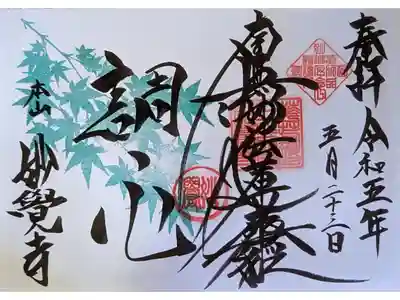 奉拝 令和五年
五月二十三日
南無妙法蓮華経
調心
本山
妙覺寺